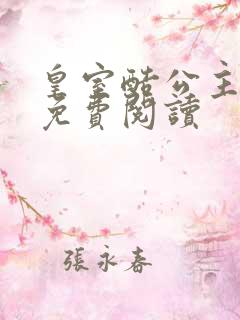 皇室酷公主
免費閱讀
張永春